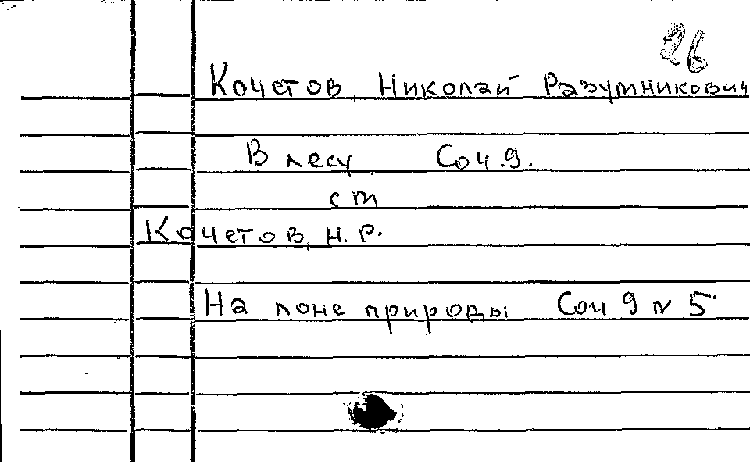 26
Кочетов, Николай Разумникович
В лесу Соч. 9.
ст
Кочетов, Н. Р.
На лоне природы Соч 9 № 5